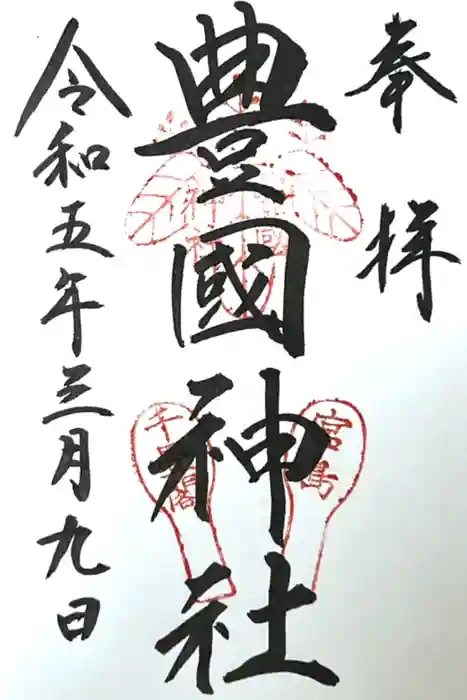 奉拝
豊國神社
令和五年三月九日
宮島
千畳閣